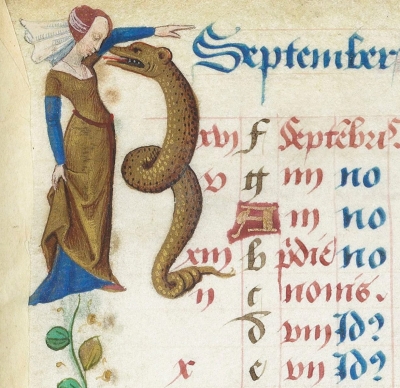 September
xvi f Septēbris
v g iiii no
A iii no
xiii b pͥdie no
ii c nonis.
d viii Idꝰ
x e vii Idꝰ